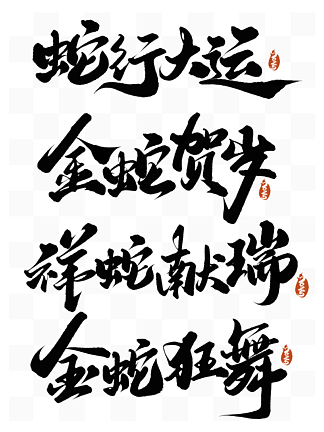 蛇行大运
金蛇贺岁
祥蛇献瑞
金蛇狂舞